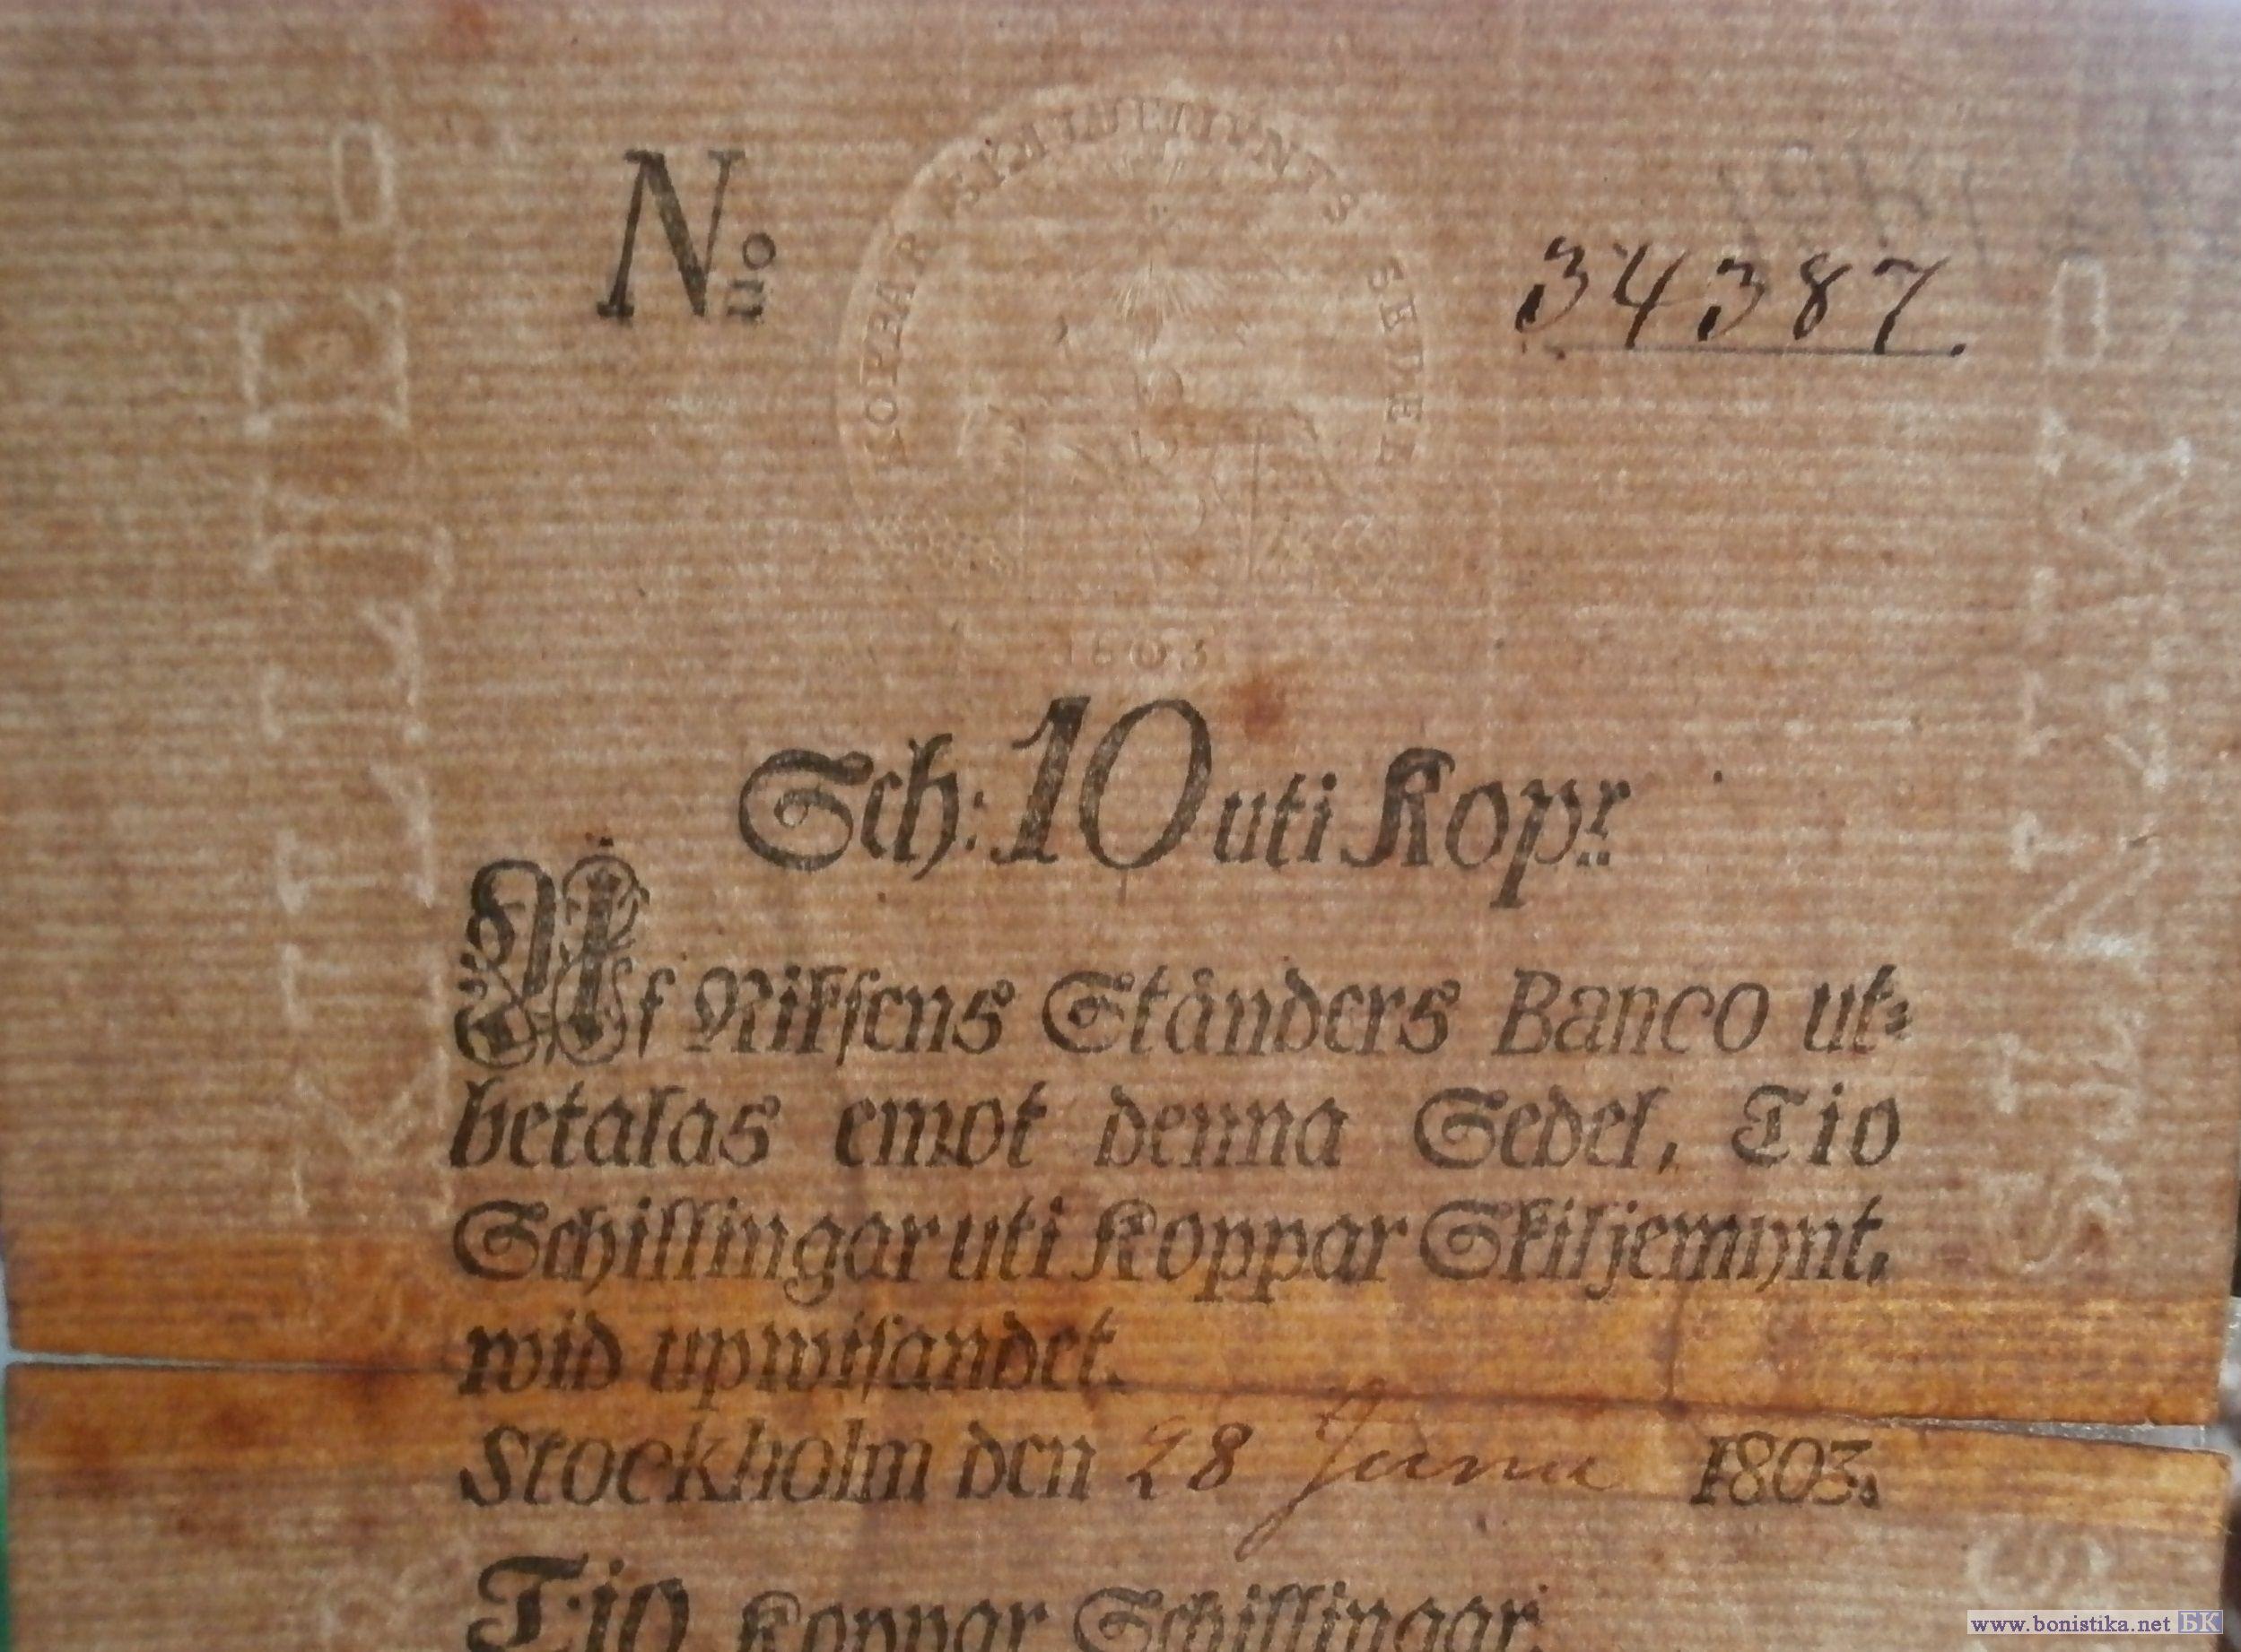 KOPPAR SKILJEMYNTS SEDEL
No 34387.
1803
Sch: 10 uti Kopr
Af Riksens Ständers Banco ut=
betalas emot denna Sedel, Tio
Schillingar uti Koppar Skiljemynt,
wid upwisandet.
Stockholm den 28 Junii 1803.
Tio Koppar Schillingar.
www.bonistika.net БК